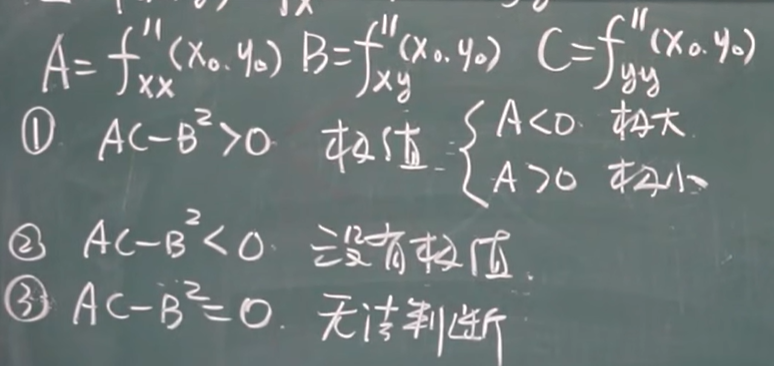 A=f''xx(x₀.y₀) B=f''xy(x₀.y₀) C=f''yy(x₀.y₀)
① AC-B²>0 极值 { A<0 极大
A>0 极小
② AC-B²<0. 没有极值.
③ AC-B²=0. 无法判断